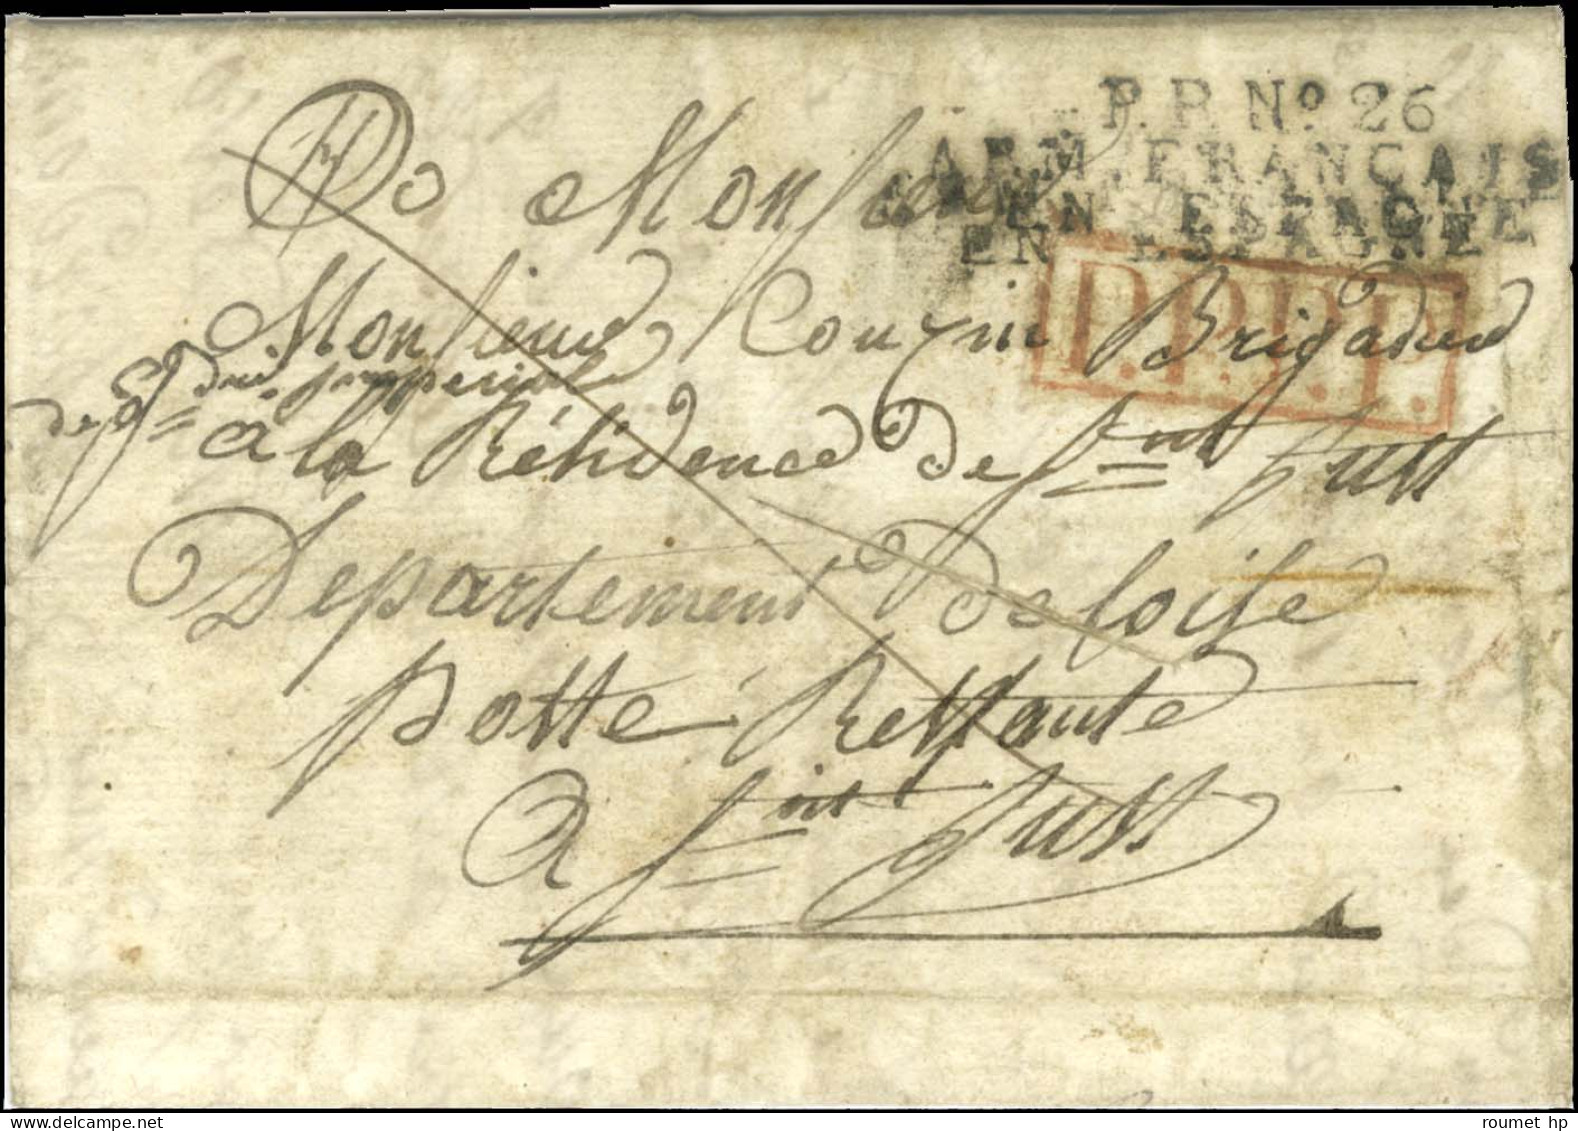 P.P. No. 26
ARM. FRANÇAIS
EN ESPAGNE
EN ESPAGNE
P.P.P.P.
A Monsieur
Monsieur Couzin Brigadier
de Gd. rie imperiale
à la Résidence de St. int Just
Departement De loise
poste Restante
A St. int Just
roumet hp